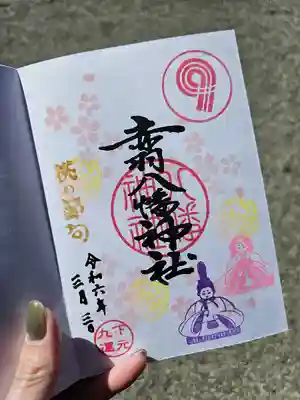 八幡神社
桃の節句
令和六年
三月三日
下元
九運